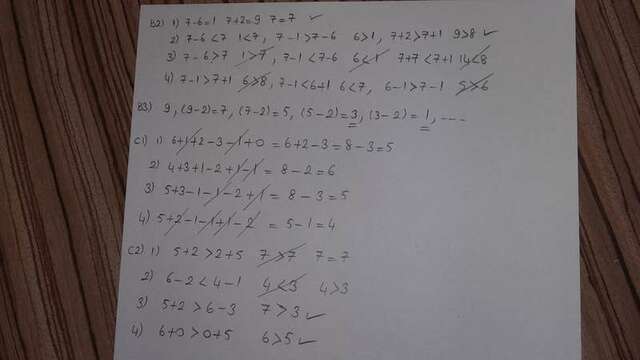 B2) 1) 7-6=1 7+2=9 7=7 ✓
2) 7-6<7 1<7, 7-1>7-6 6>1, 7+2>7+1 9>8 ✓
3) 7-6>7 1>7, 7-1<7-6 6<1 7+7<7+1 14<8
4) 7-1>7+1 6>8, 7-1<6+1 6<7, 6-1>7-1 5>6
B3) 9, (9-2)=7, (7-2)=5, (5-2)=3, (3-2)=1, ....
C1) 1) 6+1+2-3-1+0=6+2-3=8-3=5
2) 4+3+1-2+1-1=8-2=6
3) 5+3-1-1-2+1=8-3=5
4) 5+2-1-1+1-2=5-1=4
C2) 1) 5+2>2+5 7>7 7=7
2) 6-2<4-1 4<3 4>3
3) 5+2>6-3 7>3 ✓
4) 6+0>0+5 6>5 ✓